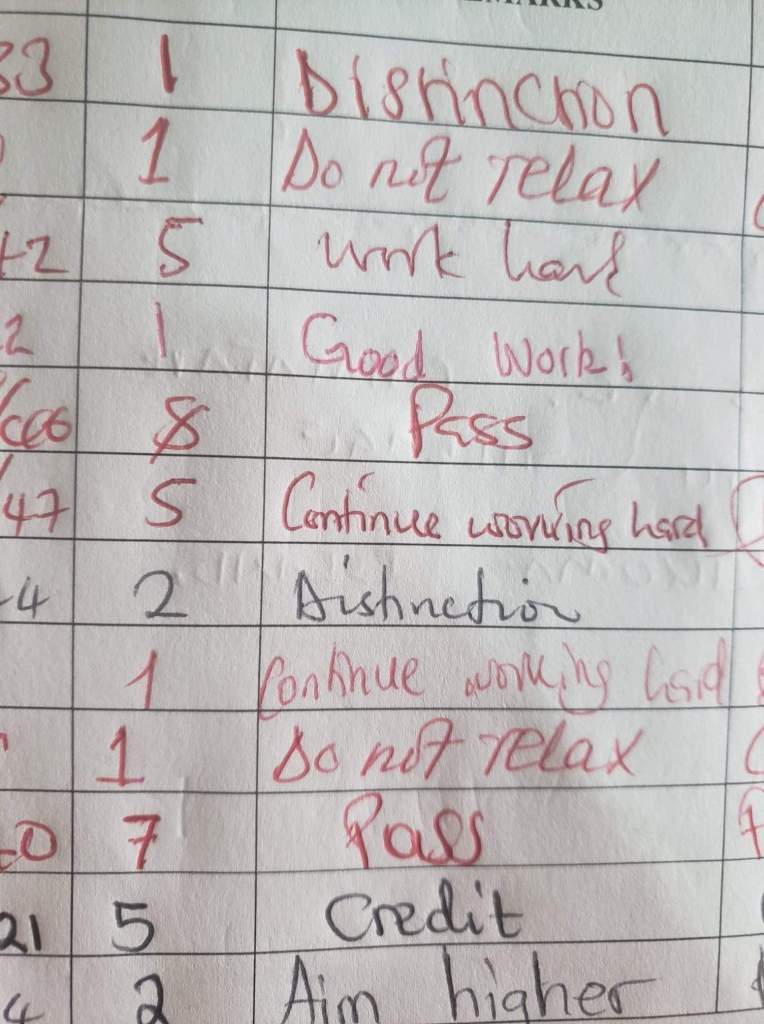 33 1 Distinction
1 Do not relax
42 5 work hard
2 1 Good Work!
8 Pass
47 5 Continue working hard
4 2 Distinction
1 Continue working hard
1 Do not relax
0 7 Pass
21 5 Credit
4 2 Aim higher